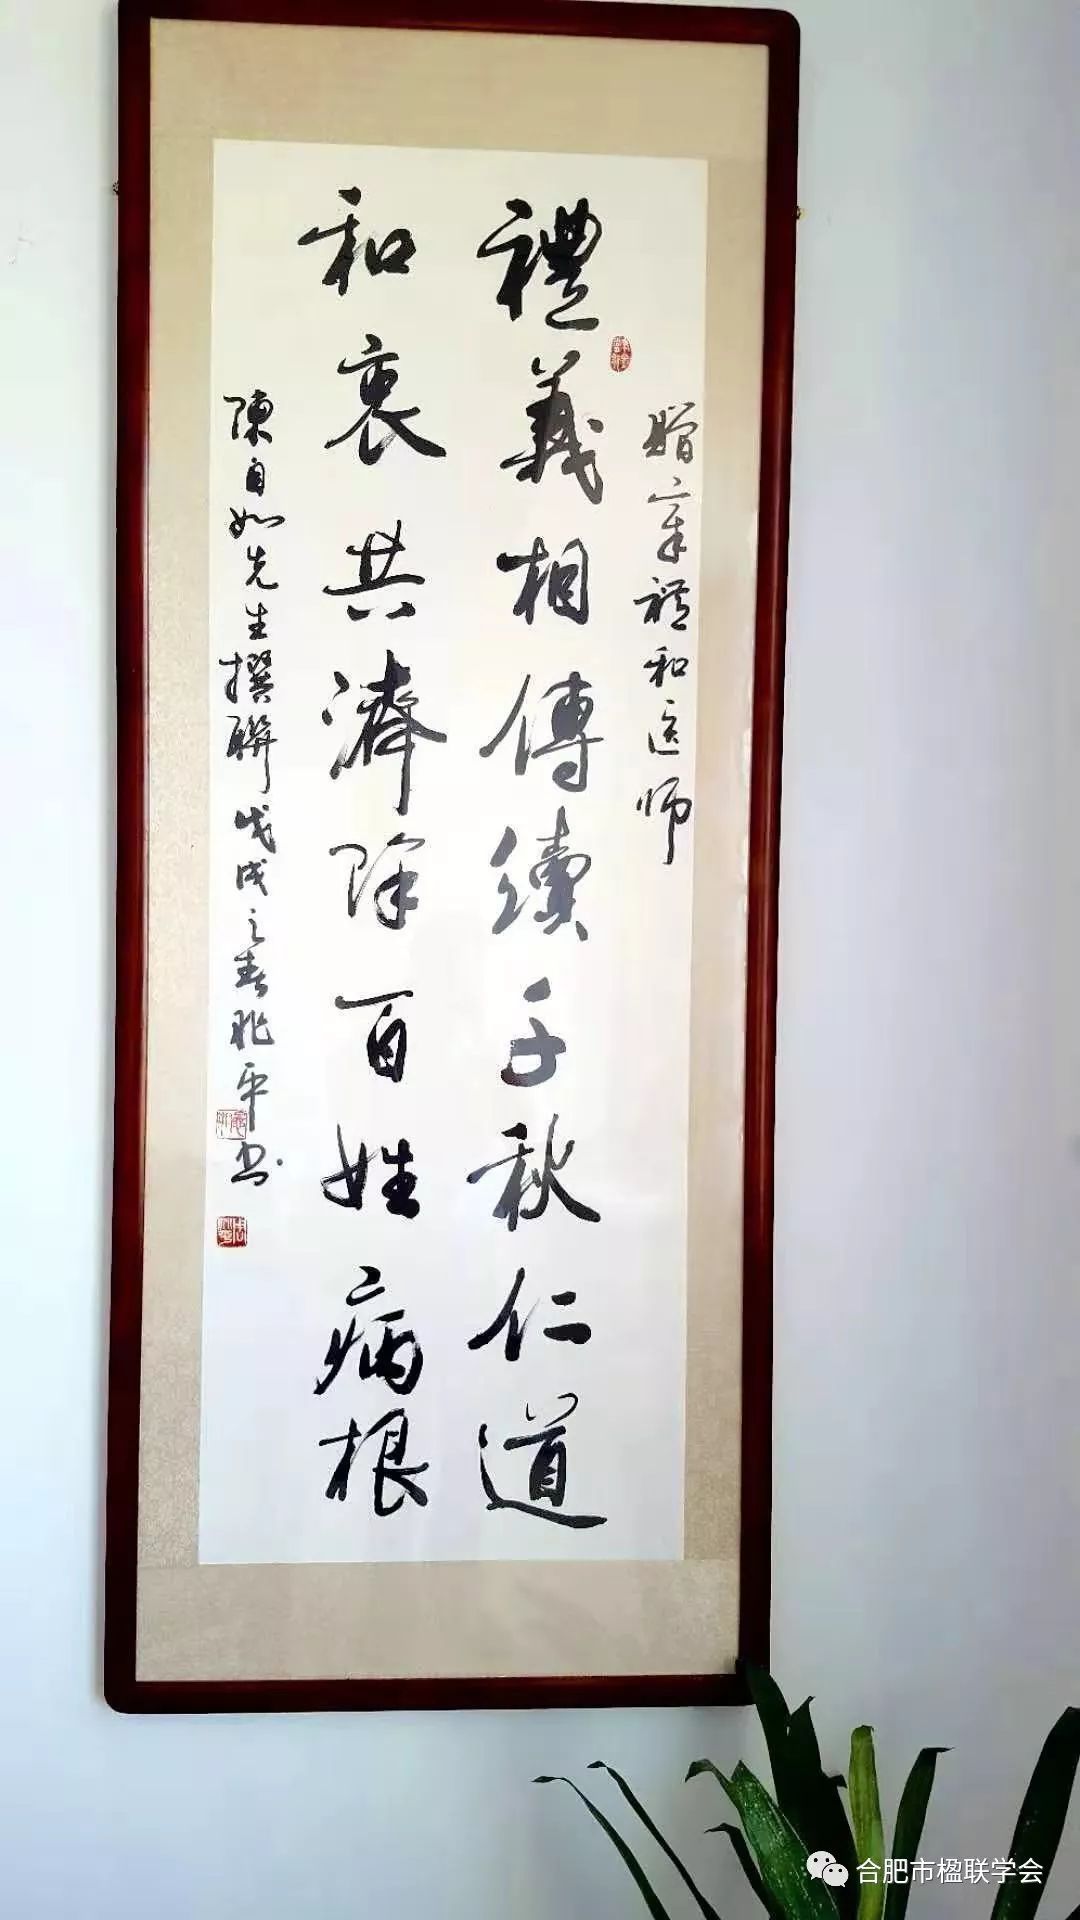 贈章禮和医师
禮義相傳續千秋仁道
和衷共濟除百姓病根
陳自如先生撰聯戊戌之春兆平书
合肥市楹联学会